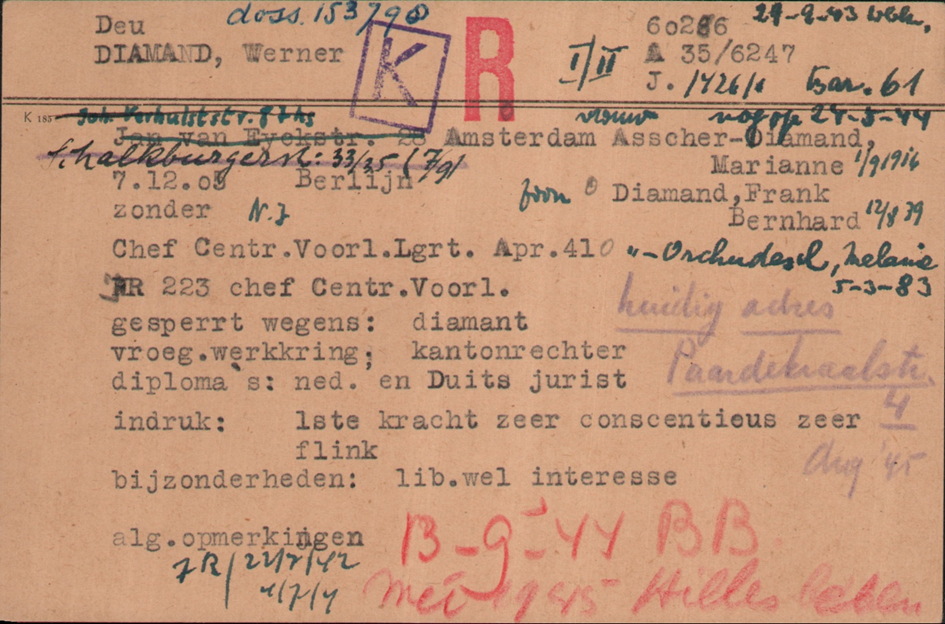 Deu doss. 153798 60286 29-9-43
DIAMAND, Werner K R I/II A 35/6247
J. /1726/1 Bar. 61
K 183 Joh Verhulststr. 87 hs vrouw 24-5-44
Jan van Eyckstr. 28 Amsterdam Asscher-Diamand,
Schalkburgerstr: 33/35 Marianne 1/9 1916
7.12.03 Berlijn zoon Diamand,Frank
zonder N.J Bernhard 12/8 39
Chef Centr.Voorl.Lgrt. Apr.410 "- Melanie
JR 223 chef Centr.Voorl. 5-3-83
gesperrt wegens: diamant huidig adres
vroeg.werkkring; kantonrechter Paardekraalstr.
diploma`s: ned. en Duits jurist 4
indruk: 1ste kracht zeer conscentieus zeer
flink Aug '45
bijzonderheden: lib.wel interesse
alg.opmerkingen 13-9-44 BB
JR/22/7/42
mei 1945 Hillesleben